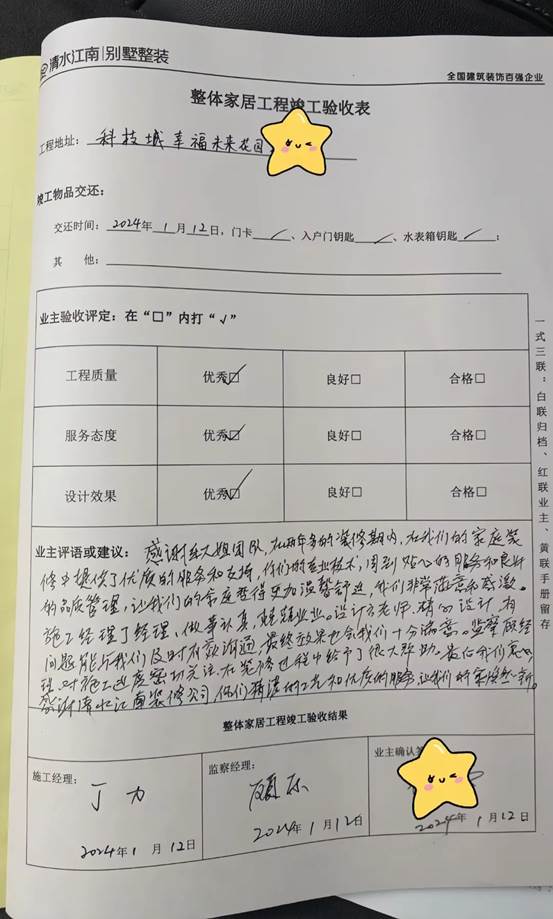 清水江南|别墅整装
全国建筑装饰百强企业
整体家居工程竣工验收表
工程地址：科技城幸福未来花园
竣工物品交还：
交还时间：2024年1月12日，门卡✓、入户门钥匙✓、水表箱钥匙✓；
其　他：
业主验收评定：在“□”内打“√”
工程质量 优秀☑ 良好□ 合格□
服务态度 优秀☑ 良好□ 合格□
设计效果 优秀☑ 良好□ 合格□
业主评语或建议：感谢大姐团队，在两年多的装修期内，在我们的家庭装
修中提供了优质的服务和支持，你们的专业技术，周到贴心的服务和良好
的品质管理，让我们的家庭变得更加温馨舒适，我们非常满意和感激。
施工经理丁经理，做事认真，兢兢业业。设计方老师，精心设计，有
问题能和我们及时有效沟通，最终效果也令我们十分满意。监察顾经
理，对施工进度密切关注，在装修过程中给予了很大帮助。最后我们衷心
感谢清水江南装修公司，你们精湛的工艺和优质的服务，让我们的家焕然一新。
整体家居工程竣工验收结果
施工经理：
丁力
2024年1月12日
监察经理：
顾
2024年1月12日
业主确认签
2024年1月12日
一式三联：白联归档、红联业主、黄联手册留存